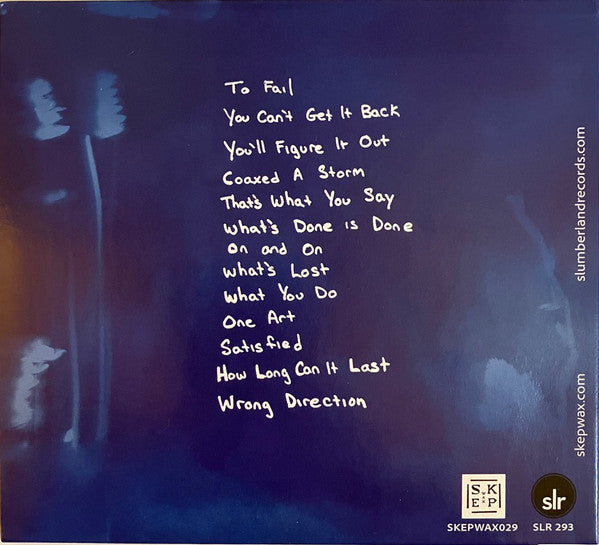 To Fail
You Can't Get It Back
You'll Figure It Out
Coaxed A Storm
That's What You Say
What's Done is Done
On and On
What's Lost
What You Do
One Art
Satisfied
How Long Can It Last
Wrong Direction
slumberlandrecords.com
skepwax.com
SK
EP
SKEPWAX029
slr
SLR 293